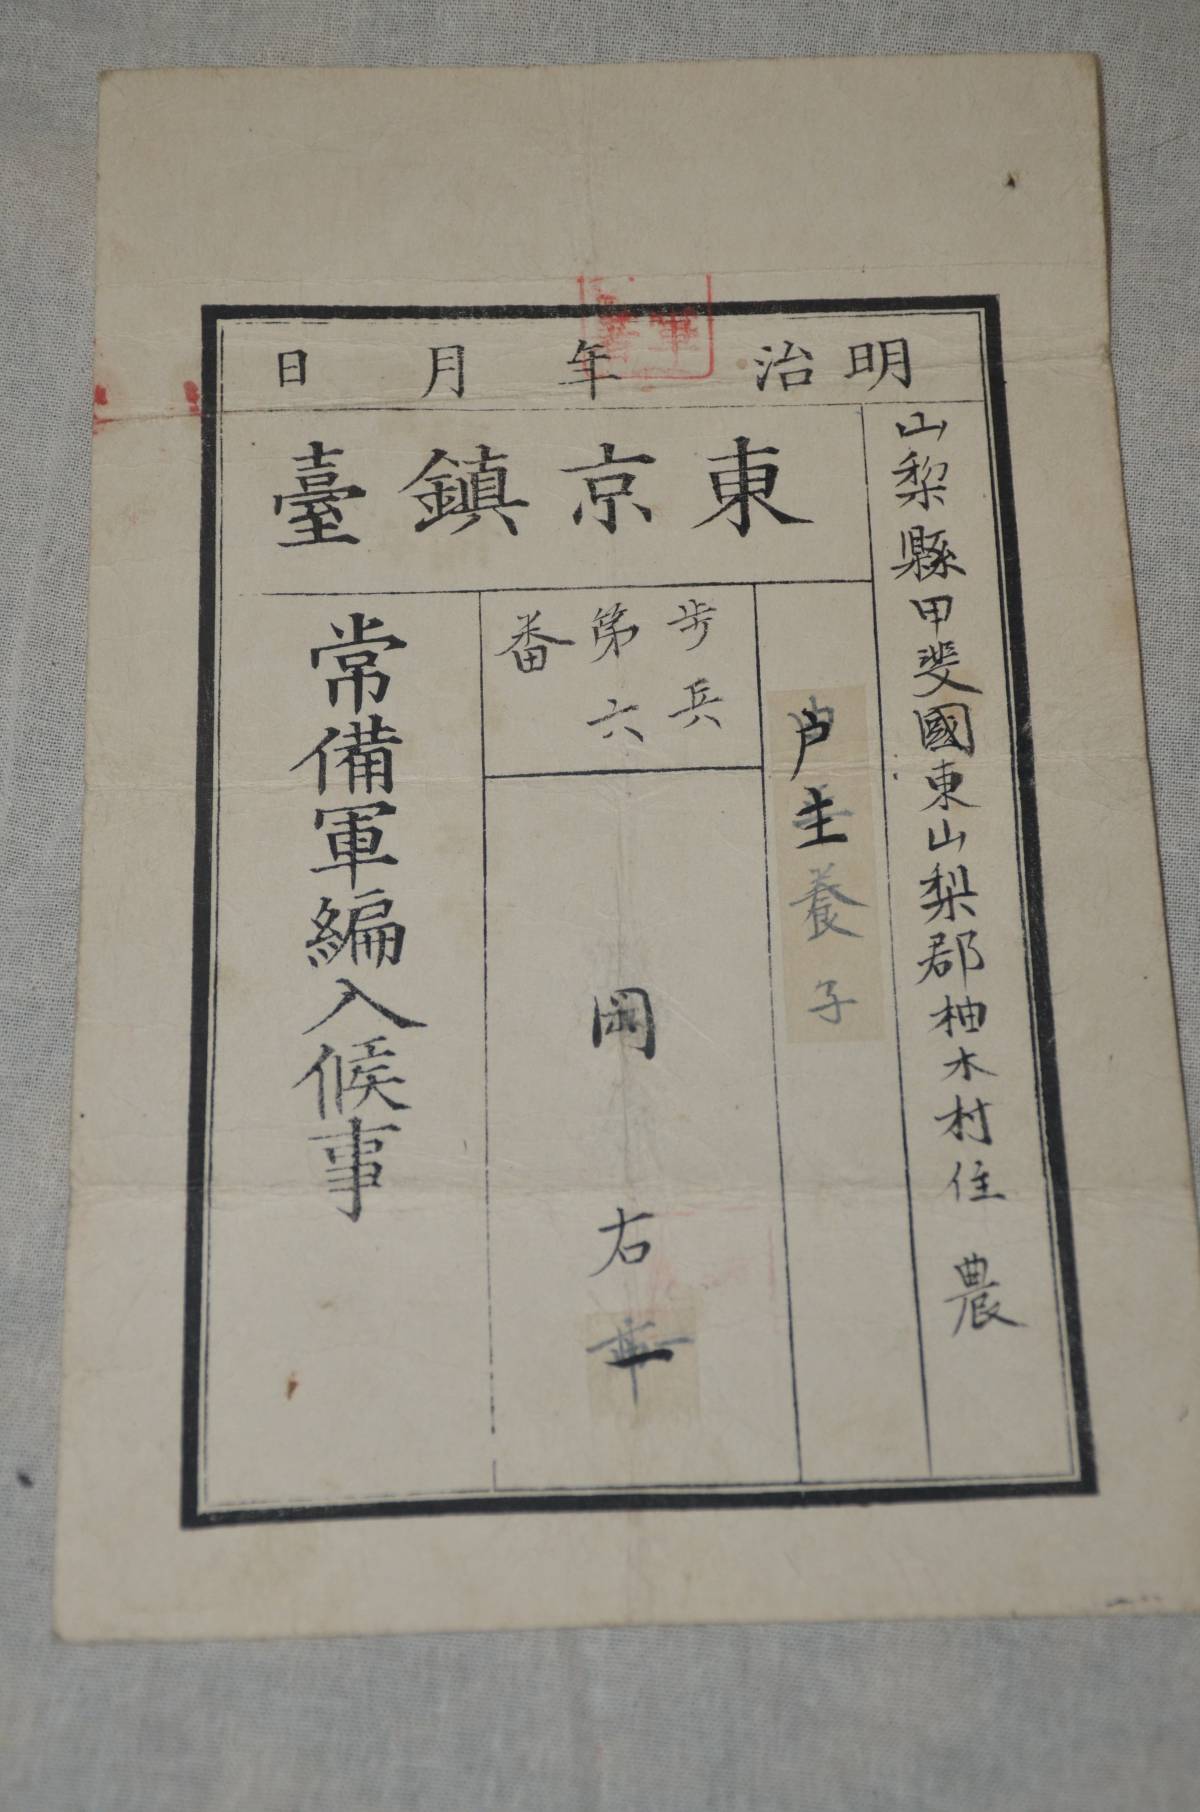 明治 年 月 日
山梨縣甲斐國東山梨郡柚木村住 農
東京鎮臺
戸主養子
歩兵
第六
番
岡 右
常備軍編入候事